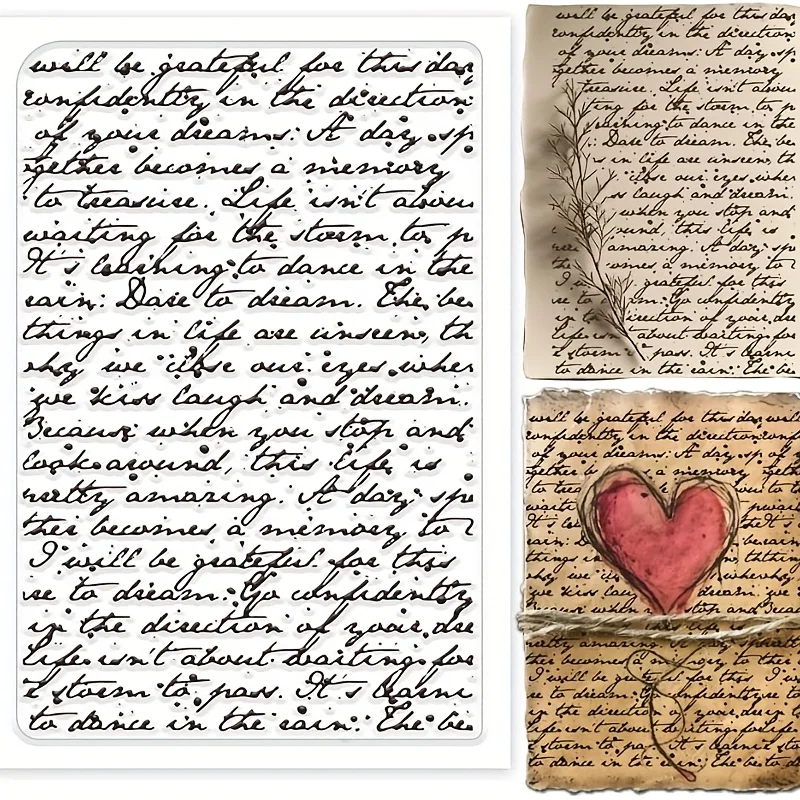 will be grateful for this day
confidently in the direction
of your dreams. A day sp
gether becomes a memory
to treasure. Life isn't about
waiting for the storm to p
It's learning to dance in the
rain. Dare to dream. The be
things in life are unseen, th
why we close our eyes when
we kiss laugh and dream.
Because when you stop and
look around, this life is
pretty amazing. A day sp
ther becomes a memory to
I will be grateful for this
re to dream. Go confidently
in the direction of your dre
Life isn't about waiting for
storm to pass. It's learni
to dance in the rain. The be
will be grateful for this day
confidently in the direction
of your dreams. A day sp
gether becomes a memory
treasure. Life isn't abou
ting for the storm to p
learning to dance in the
Dare to dream. The be
s in life are unseen, th
close our eyes when
ss laugh and dream.
when you stop and
ound, this life is
amazing. A day sp
omes a memory to
grateful for this
re to dream. Go confidently
direction of your dre
Life isn't about waiting for
storm to pass. It's learni
to dance in the rain. The be
will be grateful for this day will
confidently in the direction conf
of your dreams. A day sp
gether a memory
to trea
waiti
It's
rain
things in
why we
we kiss laug
Because when stop and Because
pretty amazing. A day sp
ther becomes a memory to ther
I will be grateful for this I will
re to dream. Go confidently re to
in the direction of your
Life isn't about waiting for Life
storm to pa It's learni
to dance in the rain. The be to dan